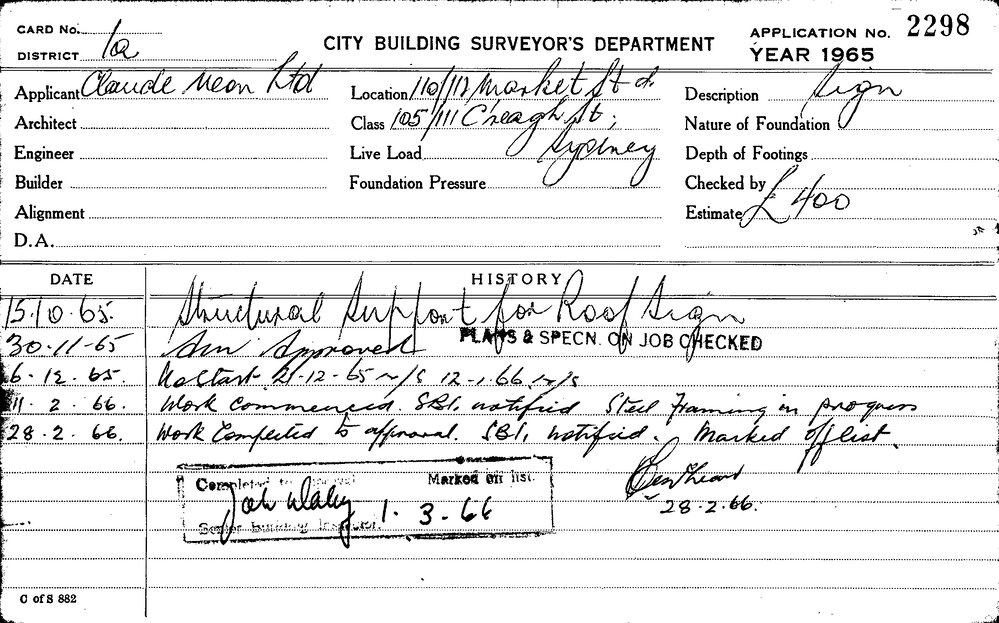 CARD No.
DISTRICT 1a
CITY BUILDING SURVEYOR'S DEPARTMENT
APPLICATION No. 2298
YEAR 1965
Applicant Claude Neon Ltd
Architect
Engineer
Builder
Alignment
D.A.
Location 110/112 Market St &
Class 105/111 C'reagh St;
Live Load Sydney
Foundation Pressure
Description Sign
Nature of Foundation
Depth of Footings
Checked by
Estimate £400
DATE HISTORY
15.10.65. Structural Support for Roof Sign
30-11-65 Approved PLANS & SPECN. ON JOB CHECKED
6-12.65. No Start 21-12-65 n/s 12-1.66 n/s
11.2.66. Work commenced. SBI, notified Steel Framing in progress
28.2.66. Work Completed to approval. SBI, notified. Marked off list.
28.2.66.
Completed to approval Marked off list.
1.3.66
Senior Building Inspector.
C of S 882